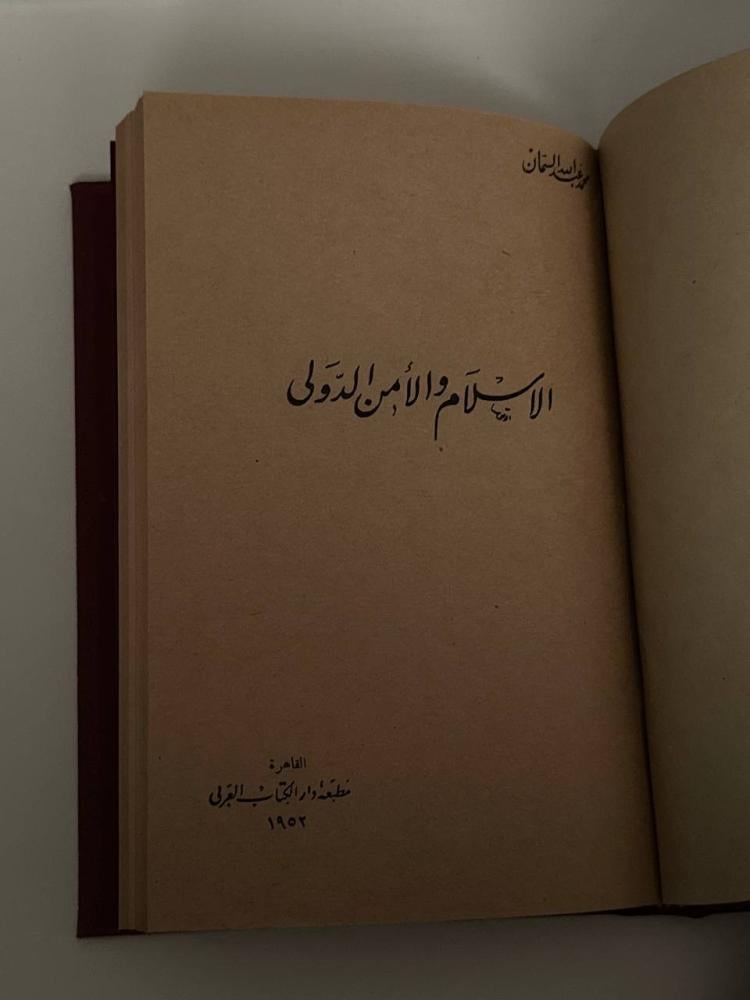 محمد عبد الله السمان
الاسلام والأمن الدَّولى
القاهرة
مطبعة دار الكتاب العربى
١٩٥٢